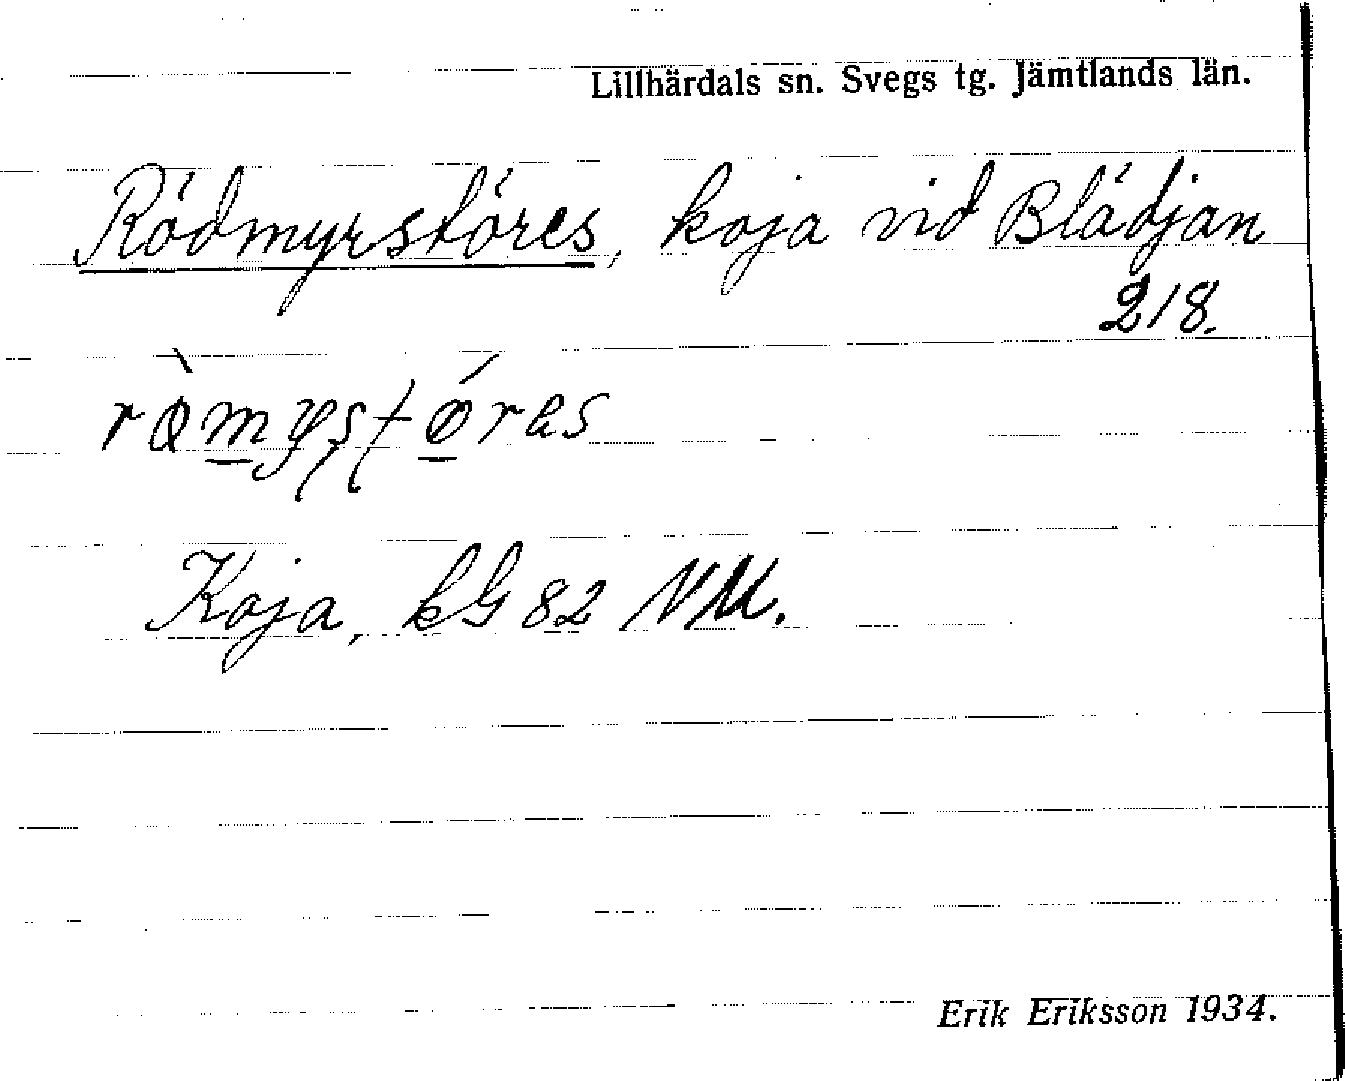 Lillhärdals sn. Svegs tg. Jämtlands län.
Rödmyrstöres, koja vid Blädjan
218.
Koja, kG 82 NM.
Erik Eriksson 1934.